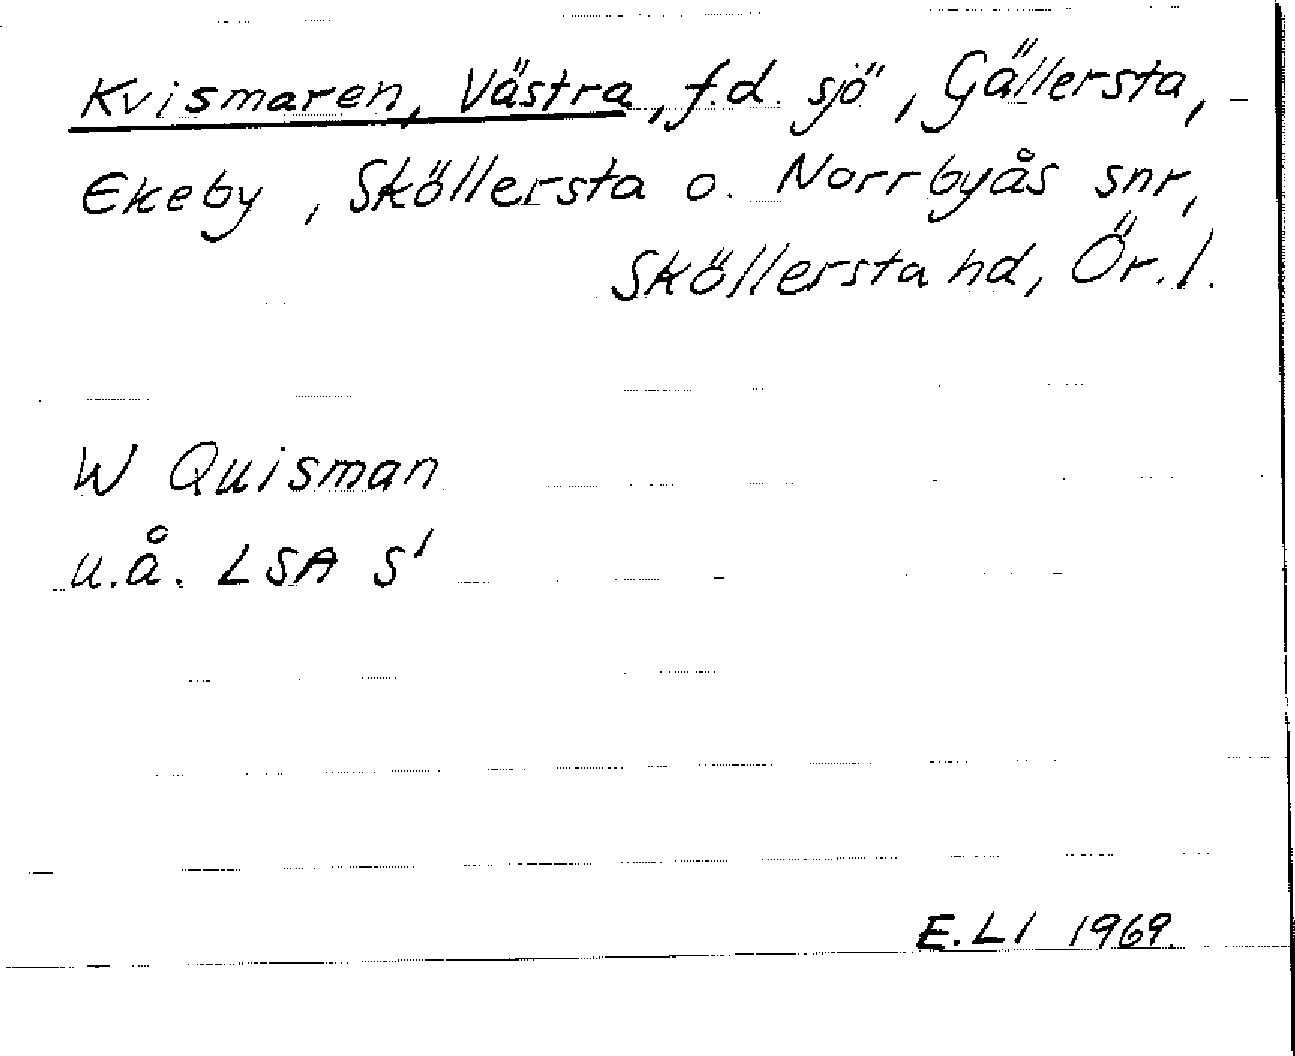 Kvismaren, Västra, f.d. sjö, Gällersta,
Ekeby, Sköllersta o. Norrbyås snr,
Sköllersta hd, Ör. l.
W Quisman
u.å. LSA S1
E.Ll 1969.